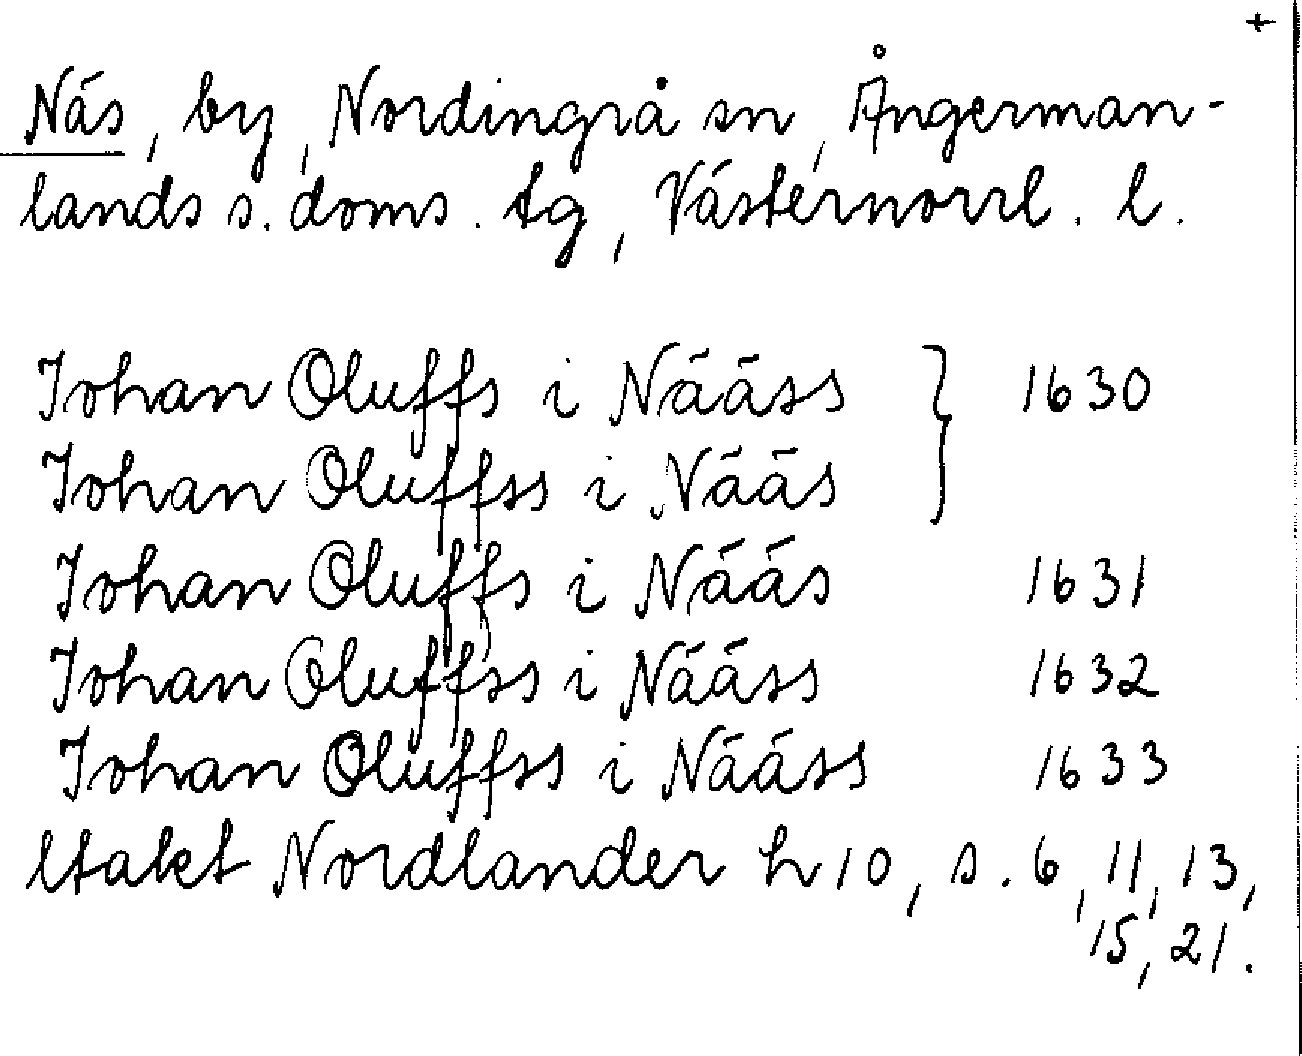 +
Näs, by, Nordingrå sn, Ångerman-
lands s. doms. tg, Västernorrl. l.
Johan Oluffs i Nääss } 1630
Johan Oluffss i Nääs
Johan Oluffs i Nääs 1631
Johan Oluffss i Nääss 1632
Johan Oluffss i Nääss 1633
Utakt Nordlander h 10, s. 6, 11, 13,
15, 21.